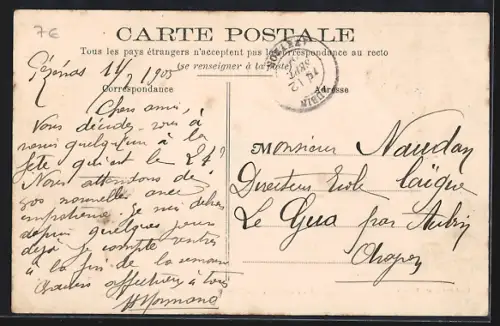 7€
CARTE POSTALE
Tous les pays étrangers n'acceptent pas la correspondance au recto
(se renseigner à la poste)
Pézénas 14/ 1905
Correspondance
Adresse
Chers amis,
Vous décidez-vous à
venir quelqu'un à la
fête qui est le 24?
Nous attendons de
vos nouvelles avec
impatience. Je suis dehors
depuis quelques jours
déjà je compte rentrer
à la fin de la semaine
affectueux à tous
Monsieur Naudan
Directeur Ecole laïque
Le Gua par Aubin
Aveyron
AUBIN